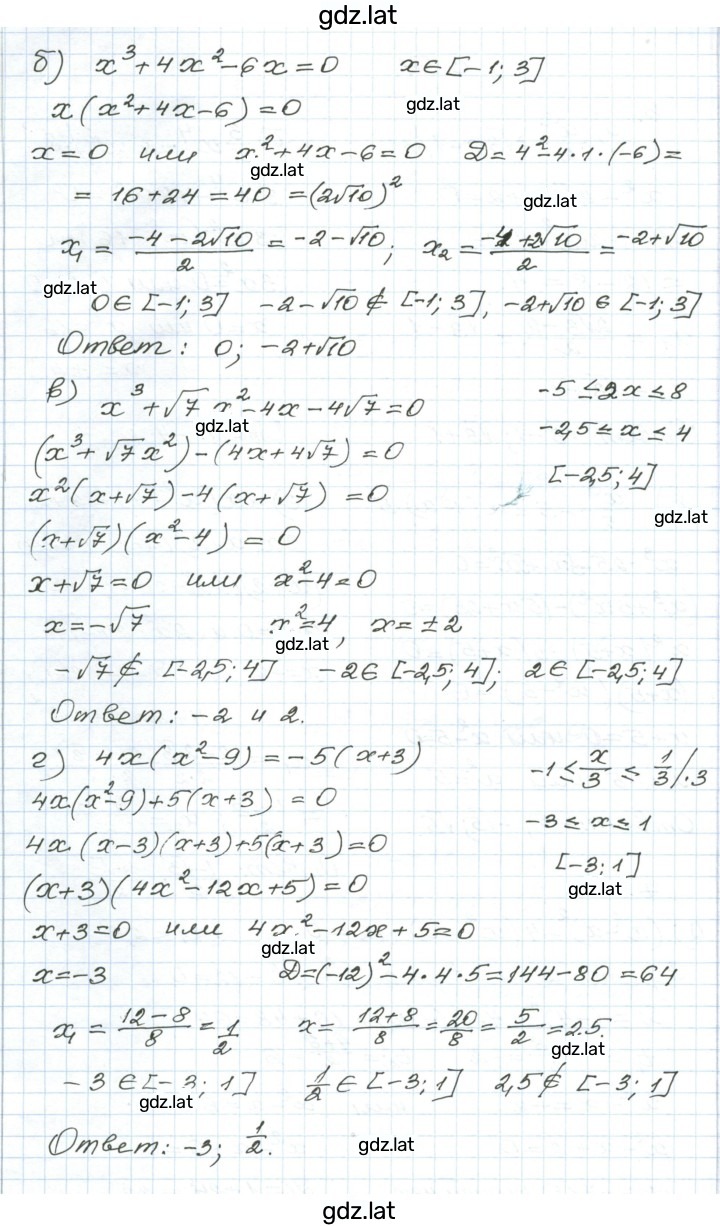 gdz.lat
б) x³+4x²-6x=0   x∈[-1; 3]
x(x²+4x-6)=0   gdz.lat
x=0 или x²+4x-6=0   D=4²-4·1·(-6)=
gdz.lat
= 16+24=40 =(2√10)²   gdz.lat
x₁ = (-4-2√10)/2 = -2-√10;   x₂ = (-4+2√10)/2 = -2+√10
gdz.lat
0∈[-1; 3]   -2-√10∉[-1; 3], -2+√10∈[-1; 3]
Ответ: 0; -2+√10
в) x³+√7x²-4x-4√7=0   -5≤2x≤8
gdz.lat
(x³+√7x²)-(4x+4√7)=0   -2,5≤x≤4
x²(x+√7)-4(x+√7)=0   [-2,5; 4]
gdz.lat
(x+√7)(x²-4)=0
x+√7=0 или x²-4=0
x=-√7   x²=4, x=±2
gdz.lat
-√7∉[-2,5; 4]   -2∈[-2,5; 4]; 2∈[-2,5; 4]
Ответ: -2 и 2.
г) 4x(x²-9)=-5(x+3)   -1≤x/3≤1/3 /·3
4x(x²-9)+5(x+3)=0   -3≤x≤1
4x(x-3)(x+3)+5(x+3)=0   [-3; 1]
(x+3)(4x²-12x+5)=0   gdz.lat
x+3=0 или 4x²-12x+5=0
gdz.lat
x=-3   D=(-12)²-4·4·5=144-80=64
x₁ = (12-8)/8 = 1/2   x = (12+8)/8 = 20/8 = 5/2 = 2.5.
gdz.lat
-3∈[-3; 1]   1/2∈[-3; 1]   2,5∉[-3; 1]
gdz.lat
Ответ: -3; 1/2.   gdz.lat
gdz.lat